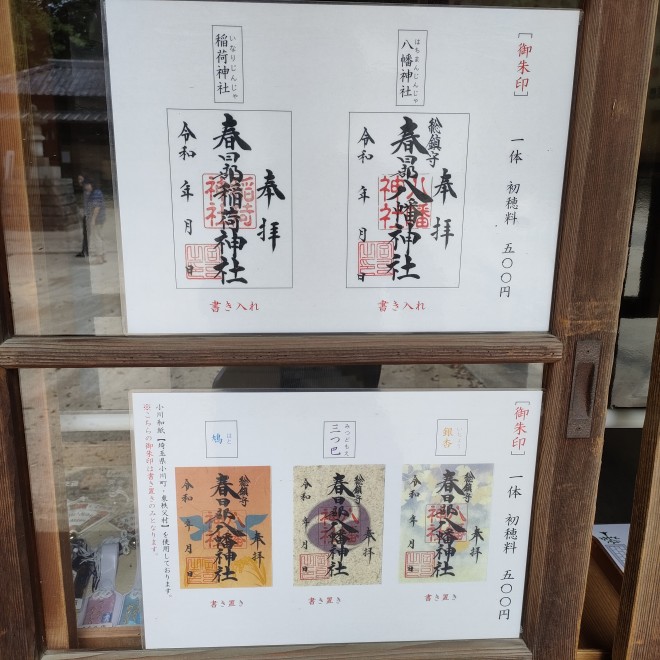 ［御朱印］　一体　初穂料　五〇〇円
はちまんじんじゃ
八幡神社
総鎮守
奉拝
春日部八幡神社
八幡
神社
令和　年　月　日
書き入れ
いなりじんじゃ
稲荷神社
奉拝
春日部稲荷神社
稲荷
神社
令和　年　月　日
書き入れ
［御朱印］　一体　初穂料　五〇〇円
銀杏
総鎮守
奉拝
春日部八幡神社
令和　年　月　日
書き置き
みつどもえ
三つ巴
総鎮守
奉拝
春日部八幡神社
令和　年　月　日
書き置き
はと
鳩
総鎮守
奉拝
春日部八幡神社
令和　年　月　日
書き置き
小川和紙【埼玉県小川町・東秩父村】を使用しております。
※こちらの御朱印は書き置きのみとなります。